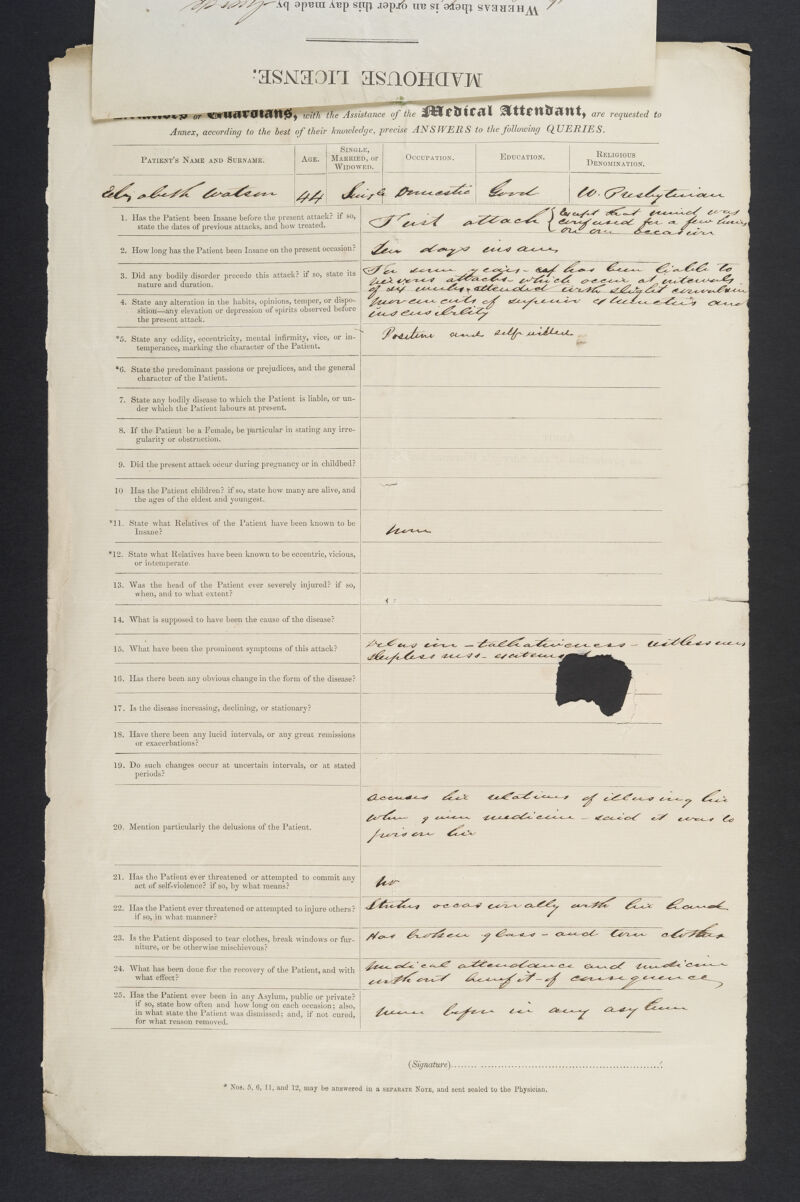 WHEREAS there is an order this day made by
MADHOUSE LICENSE.
or Guardians, with the Assistance of the Medical Attendant, are requested to
Annex, according to the best of their knowledge, precise ANSWERS to the following QUERIES.
PATIENT'S NAME AND SURNAME. AGE. SINGLE, MARRIED, OR WIDOWED. OCCUPATION. EDUCATION. RELIGIOUS DENOMINATION.
Elizabeth Watson 44 Single Domestic Good W. Presbyterian
1. Has the Patient been Insane before the present attack? if so,
state the dates of previous attacks, and how treated.
First attack { Except that mind was
confused for a few hours
on one occasion
2. How long has the Patient been Insane on the present occasion?
Ten days insane
3. Did any bodily disorder precede this attack? if so, state its
nature and duration.
For some years has been liable to
nervous attacks which occur at intervals
of six weeks, attended with slight convulsive
movements of superior extremities and
insensibility
4. State any alteration in the habits, opinions, temper, or dispo-
sition—any elevation or depression of spirits observed before
the present attack.
*5. State any oddity, eccentricity, mental infirmity, vice, or in-
temperance, marking the character of the Patient.
Positive and self willed
*6. State the predominant passions or prejudices, and the general
character of the Patient.
7. State any bodily disease to which the Patient is liable, or un-
der which the Patient labours at present.
8. If the Patient be a Female, be particular in stating any irre-
gularity or obstruction.
9. Did the present attack occur during pregnancy or in childbed?
10 Has the Patient children? if so, state how many are alive, and
the ages of the eldest and youngest.
*11. State what Relatives of the Patient have been known to be
Insane?
none
*12. State what Relatives have been known to be eccentric, vicious,
or intemperate.
13. Was the head of the Patient ever severely injured? if so,
when, and to what extent?
14. What is supposed to have been the cause of the disease?
15. What have been the prominent symptoms of this attack?
Delusion - talkativeness - restlessness
sleeplessness -
16. Has there been any obvious change in the form of the disease?
17. Is the disease increasing, declining, or stationary?
18. Have there been any lucid intervals, or any great remissions
or exacerbations?
19. Do such changes occur at uncertain intervals, or at stated
periods?
20. Mention particularly the delusions of the Patient.
accuses her relations of illusing her
When given medicine - said it was to
poison her
21. Has the Patient ever threatened or attempted to commit any
act of self-violence? if so, by what means?
No
22. Has the Patient ever threatened or attempted to injure others?
if so, in what manner?
Strikes occasionally with her hand
23. Is the Patient disposed to tear clothes, break windows or fur-
niture, or be otherwise mischievous?
Has broken glass - and torn clothes
24. What has been done for the recovery of the Patient, and with
what effect?
Medical attendance and medicine
without benefit of consequence
25. Has the Patient ever been in any Asylum, public or private?
if so, state how often and how long on each occasion; also,
in what state the Patient was dismissed; and, if not cured,
for what reason removed.
never before in any asylum
(Signature)
* Nos. 5, 6, 11, and 12, may be answered in a SEPARATE NOTE, and sent sealed to the Physician.